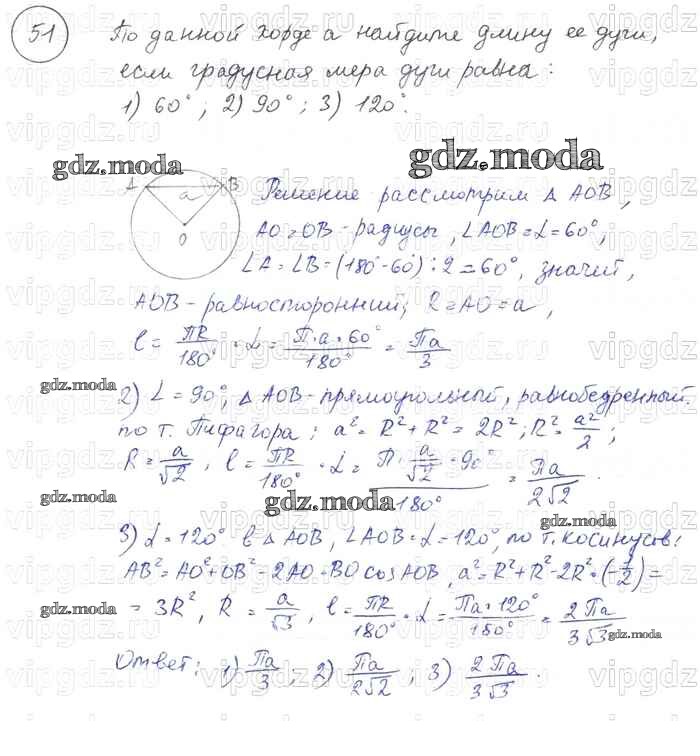 51
По данной хорде а найдите длину ее дуги,
если градусная мера дуги равна:
1) 60°; 2) 90°; 3) 120°.
gdz.moda
gdz.moda
A B
a
O
Решение рассмотрим △ AOB,
AO=OB-радиусы, ∠AOB=∠=60°,
∠A=∠B=(180°-60°):2=60°, значит,
AOB-равносторонний; R=AO=a,
l = ПR/180° · ∠ = П·a·60°/180° = Пa/3
gdz.moda
2) ∠=90°; △ AOB-прямоугольный, равнобедренный.
по т. Пифагора; a²=R²+R²=2R²; R²=a²/2;
R = a/√2, l = ПR/180° · ∠ = П·a/√2·90°/180° = Пa/2√2.
gdz.moda
gdz.moda
gdz.moda
3) ∠=120° в △ AOB, ∠AOB=∠=120°, по т. косинусов:
AB²=AO²+OB²-2AO·BO cos AOB, a²=R²+R²-2R²·(-1/2)=
gdz.moda
= 3R², R = a/√3, l = ПR/180° · ∠ = Пa·120°/180° = 2Пa/3√3
gdz.moda
Ответ: 1) Пa/3; 2) Пa/2√2; 3) 2Пa/3√3.
vipgdz.ru